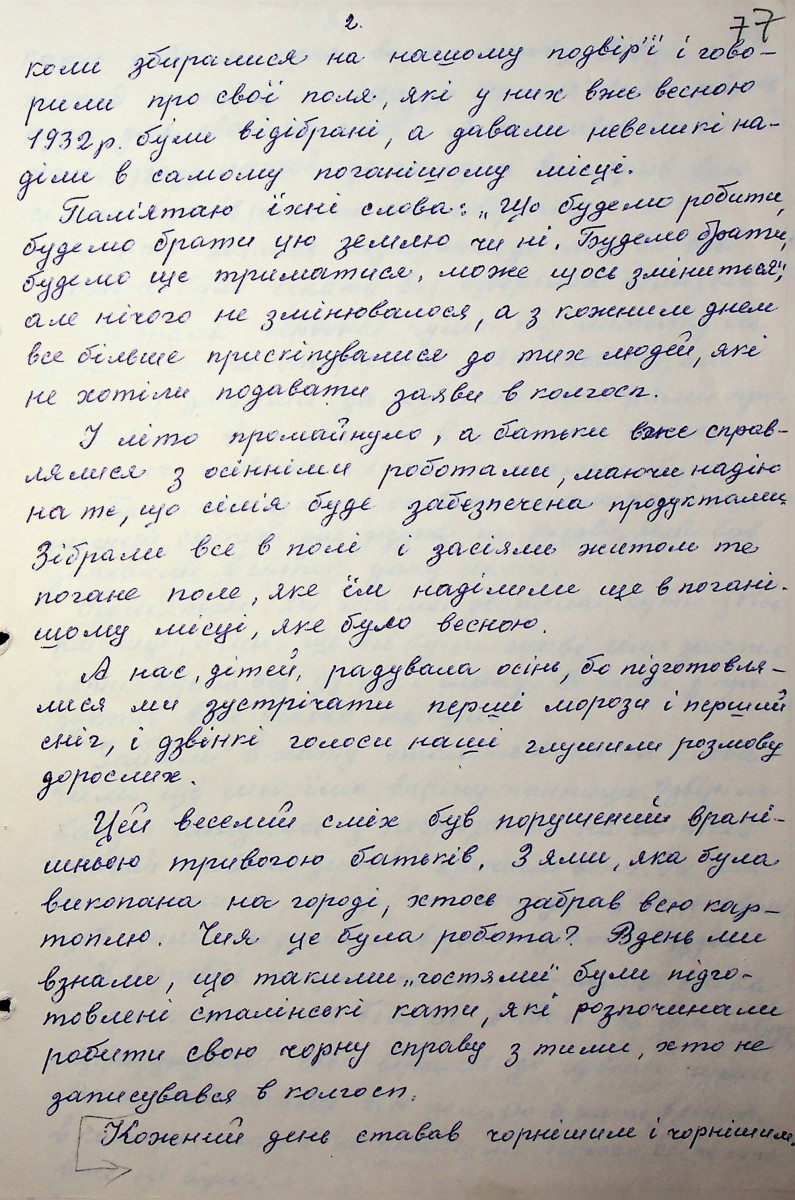 2.
77
коли збиралися на нашому подвір'ї і гово-
рили про свої поля, які у них вже весною
1932 р. були відібрані, а давали невеликі на-
діли в самому поганішому місці.
Пам'ятаю їхні слова: „Що будемо робити,
будемо брати цю землю чи ні. Будемо брати,
будемо ще триматися, може щось зміниться",
але нічого не змінювалося, а з кожним днем
все більше прискіпувалися до тих людей, які
не хотіли подавати заяви в колгосп.
І літо промайнуло, а батьки вже справ-
лялися з осінніми роботами, маючи надію
на те, що сім'я буде забезпечена продуктами.
Зібрали все в полі і засіяли житом те
погане поле, яке їм наділили ще в погані-
шому місці, яке було весною.
А нас, дітей, радувала осінь, бо підготовля-
лися ми зустрічати перші морози і перший
сніг, і дзвінкі голоси наші глушили розмову
дорослих.
Цей веселий сміх був порушений врані-
шньою тривогою батьків. З ями, яка була
викопана на городі, хтось забрав всю кар-
топлю. Чия це була робота? Вдень ми
взнали, що такими „гостями" були підго-
товлені сталінські кати, які розпочинали
робити свою чорну справу з тими, хто не
записувався в колгосп.
Кожний день ставав чорнішим і чорнішим.